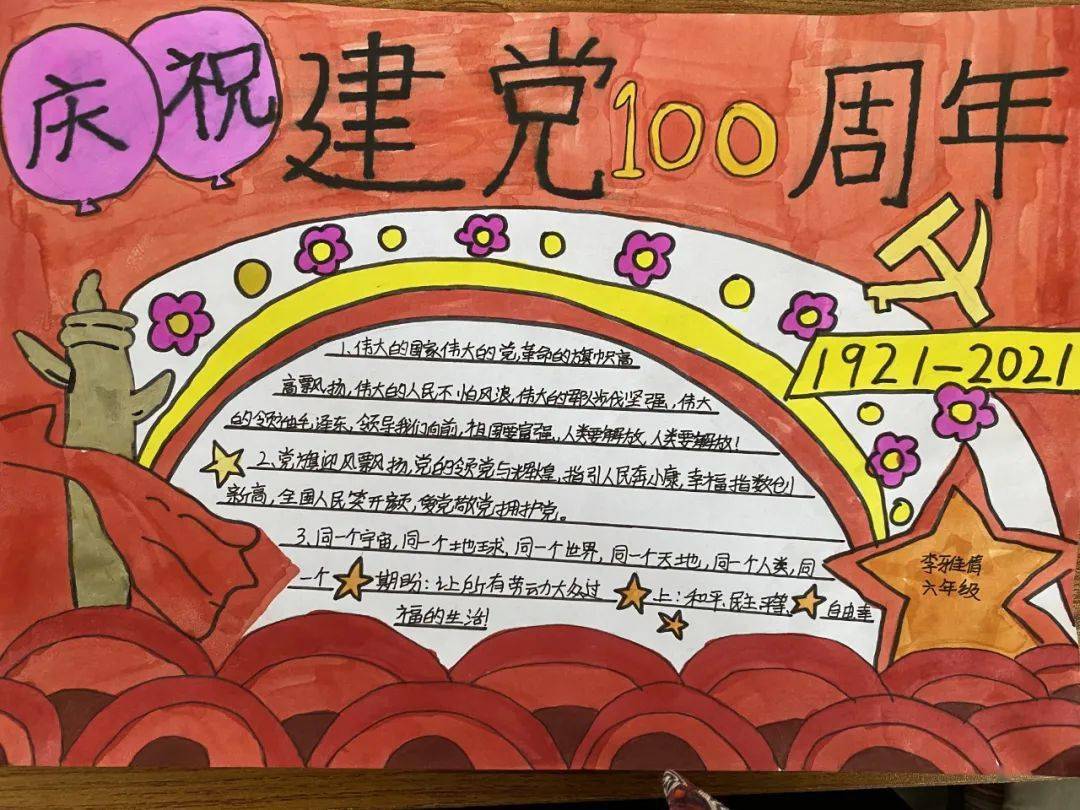 庆祝建党100周年
1921-2021
1、伟大的国家伟大的党,革命的旗帜高
高飘扬,伟大的人民不怕风浪,伟大的坚强,伟大
的领袖毛泽东,领导我们向前,祖国要富强,人类要解放,人类要解放!
2、党旗迎风飘扬,党的领党与辉煌,指引人民奔小康,幸福指数创
新高,全国人民笑开颜,爱党敬党拥护党。
3、同一个宇宙,同一个地球、同一个世界,同一个天地,同一个人类,同
一个期盼:让所有劳动大众过上:和平、民主、平等、自由幸
福的生活!
李雅倩
六年级